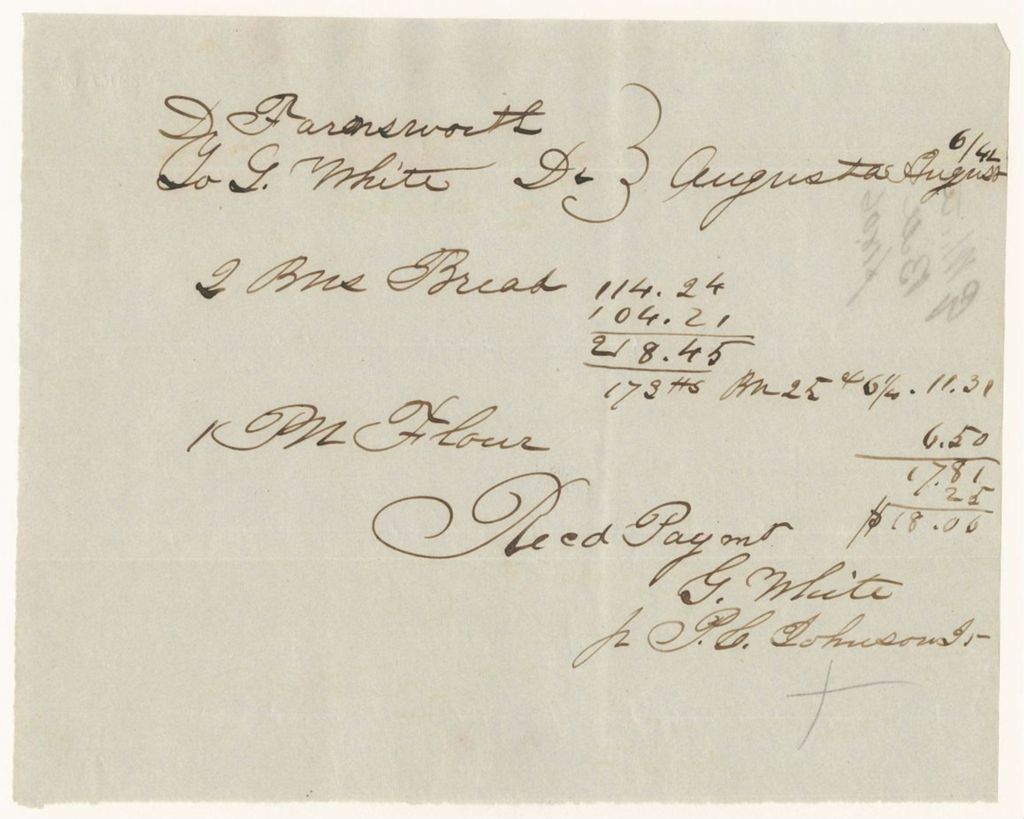 D Farnsworth
To G. White Dr } Augusta August 6/42
2 Bns Bread 114.24
104.21
218.45
173 lbs Bn 25 & 6 1/4. 11.31
1 Bn Flour 6.50
17.81
25
$18.06
Recd Paymt
G. White
pr P.C. Johnson Jr